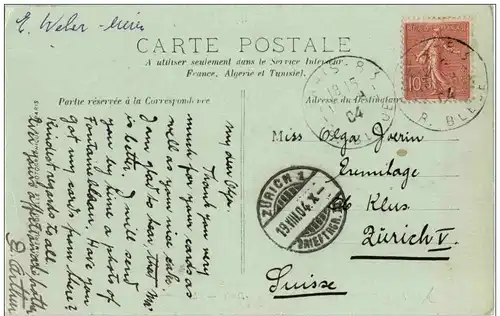 E. Weber-
CARTE POSTALE
A utiliser seulement dans le Service Intérieur,
France, Algérie et Tunisie.
Partie réservée à la Correspondance
Adresse du Destinataire
My dear Olga.
Thank you very
much for your cards as
well as your nice
I am glad to hear, that Ma
is better, I will send
you by time a photo of
Fontainebleau. Have you
got my cards from there?
Kindest regards to all
Arthur
Miss Olga
Ermitage
Klus
Zürich V.
Suisse
10
PARIS
04
R. BLEUE
ZÜRICH 1
19.VIII.04.X-
BRIEFTRÄGER